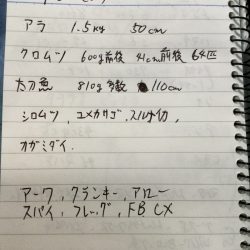 アラ 1.5kg 50cm
クロムツ 600g前後 41cm前後 6匹
太刀魚 810g 多数 110cm
シロムツ、ユメカサゴ、スルメイカ、
オガミダイ.
アーク、クランキー、アロー
スパイ、フレーグ、FB CX